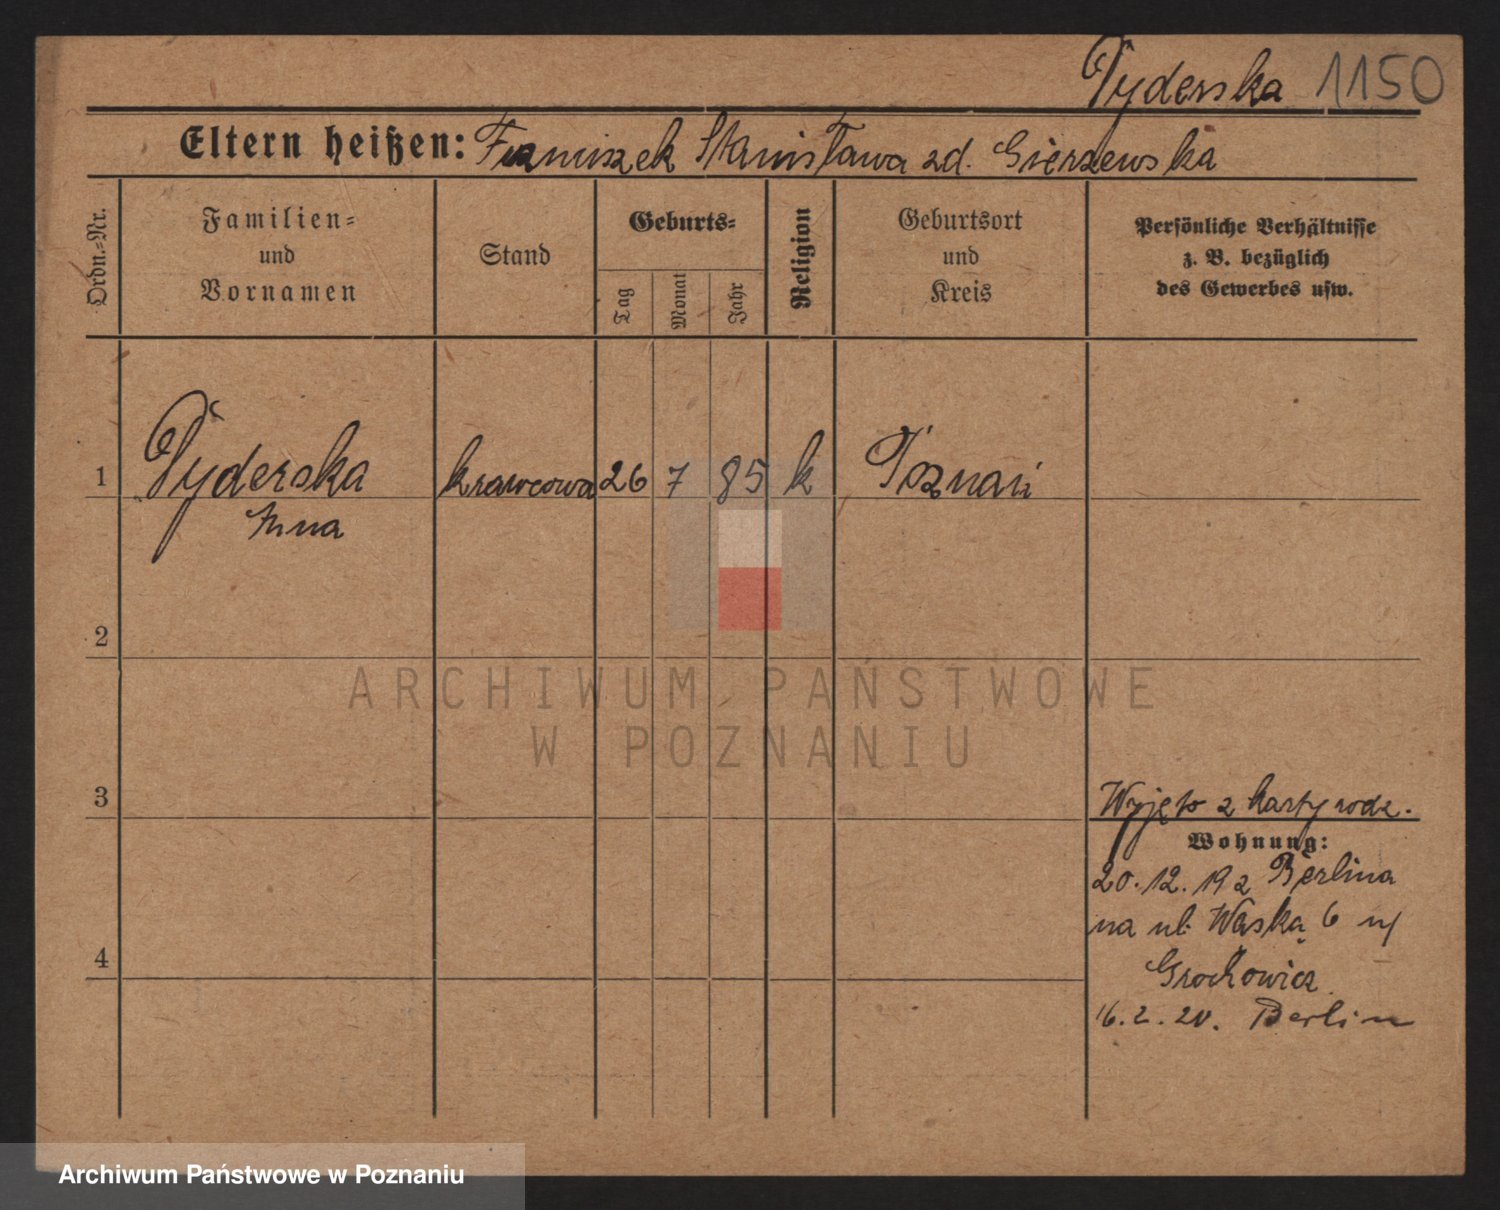 Pyderska 1150
Eltern heißen: Franciszek Stanisława zd. Gierzewska
Ordn.-Nr.
Familien-
und
Vornamen
Stand
Geburts-
Tag
Monat
Jahr
Religion
Geburtsort
und
Kreis
Persönliche Verhältnisse
z. B. bezüglich
des Gewerbes usw.
1 Pyderska krawcowa 26 7 85 k Poznań
Anna
2
ARCHIWUM PAŃSTWOWE
W POZNANIU
3
Wyjęto z karty rodz.
Wohnung:
20.12.19 z Berlina
na ul. Wąska 6 u/
4
Grochowicz
16.2.20. Berlin
Archiwum Państwowe w Poznaniu